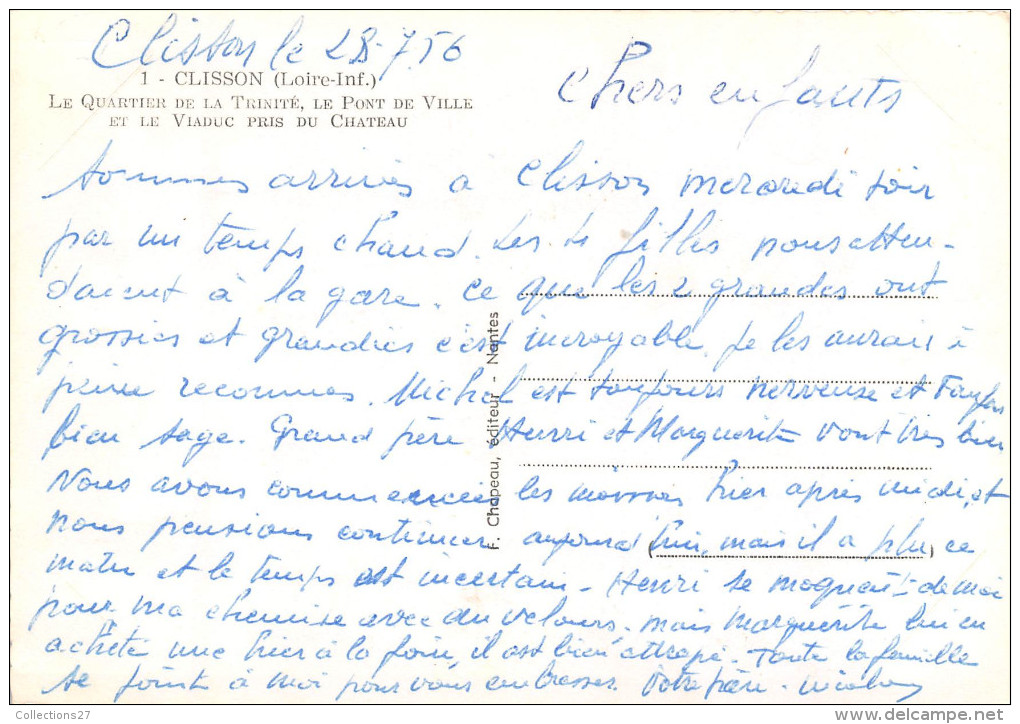 Clisson le 28-7.56
1 - CLISSON (Loire-Inf.)
LE QUARTIER DE LA TRINITÉ, LE PONT DE VILLE
ET LE VIADUC PRIS DU CHATEAU
Chers enfants
sommes arrivés a Clisson mercredi soir
par un temps chaud. Les filles nous atten-
daient à la gare. Ce que les 2 grandes ont
grossies et grandies c'est incroyable. Je les aurais à
peine reconnues. Michel est toujours nerveuse et
bien sage. Grand père Henri et Marguerite vont très bien
Nous avons commencé les moissons hier après midi, et
nous pensions continuer aujourd'hui, mais il a plu ce
matin et le temps est incertain - Henri se moquait de moi
pour ma chemise avec du velours. mais Marguerite lui en
acheté une hier à la foire, il est bien attrapé. Toute la famille
se joint à moi pour vous embrasser. Votre père -
F. Chapeau, éditeur - Nantes
Collections27